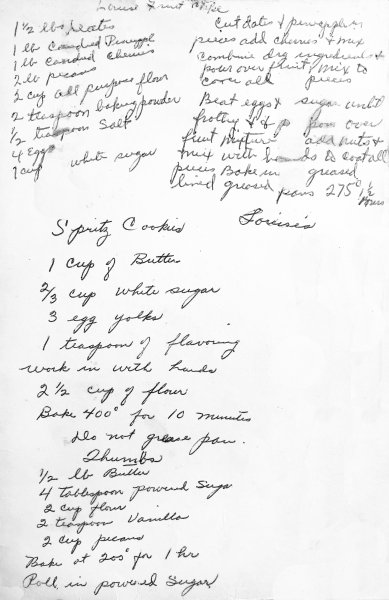 Louise Fruit Cake
1 1/2 lbs dates
1 lb Candied Pineappl
1 lb Candied Cherries
2 lb pecans
2 cup all purpose flour
2 teaspoon baking powder
1/2 teaspoon Salt
4 Eggs
1 cup white sugar
Cut dates & pineapple in
pieces add cherries & mix
Combine dry ingredients &
pour over fruit & mix to
coat all pieces
Beat eggs & sugar until
frothy & pour over
fruit mixture add nuts &
mix with hands to coat all
pieces Bake in greased
lined greased pans 275° 1 1/2
hours
Spritz Cookies Louise's
1 cup of Butter
2/3 cup white sugar
3 egg yolks
1 teaspoon of flavouring
work in with hands
2 1/2 cup of flour
Bake 400° for 10 minutes
Do not grease pan.
Thumbs
1/2 lb Butter
4 tablespoon powered Suga
2 cup flour
2 teaspoon Vanilla
2 cup pecans
Bake at 205° for 1 hr
Roll in powered Sugar